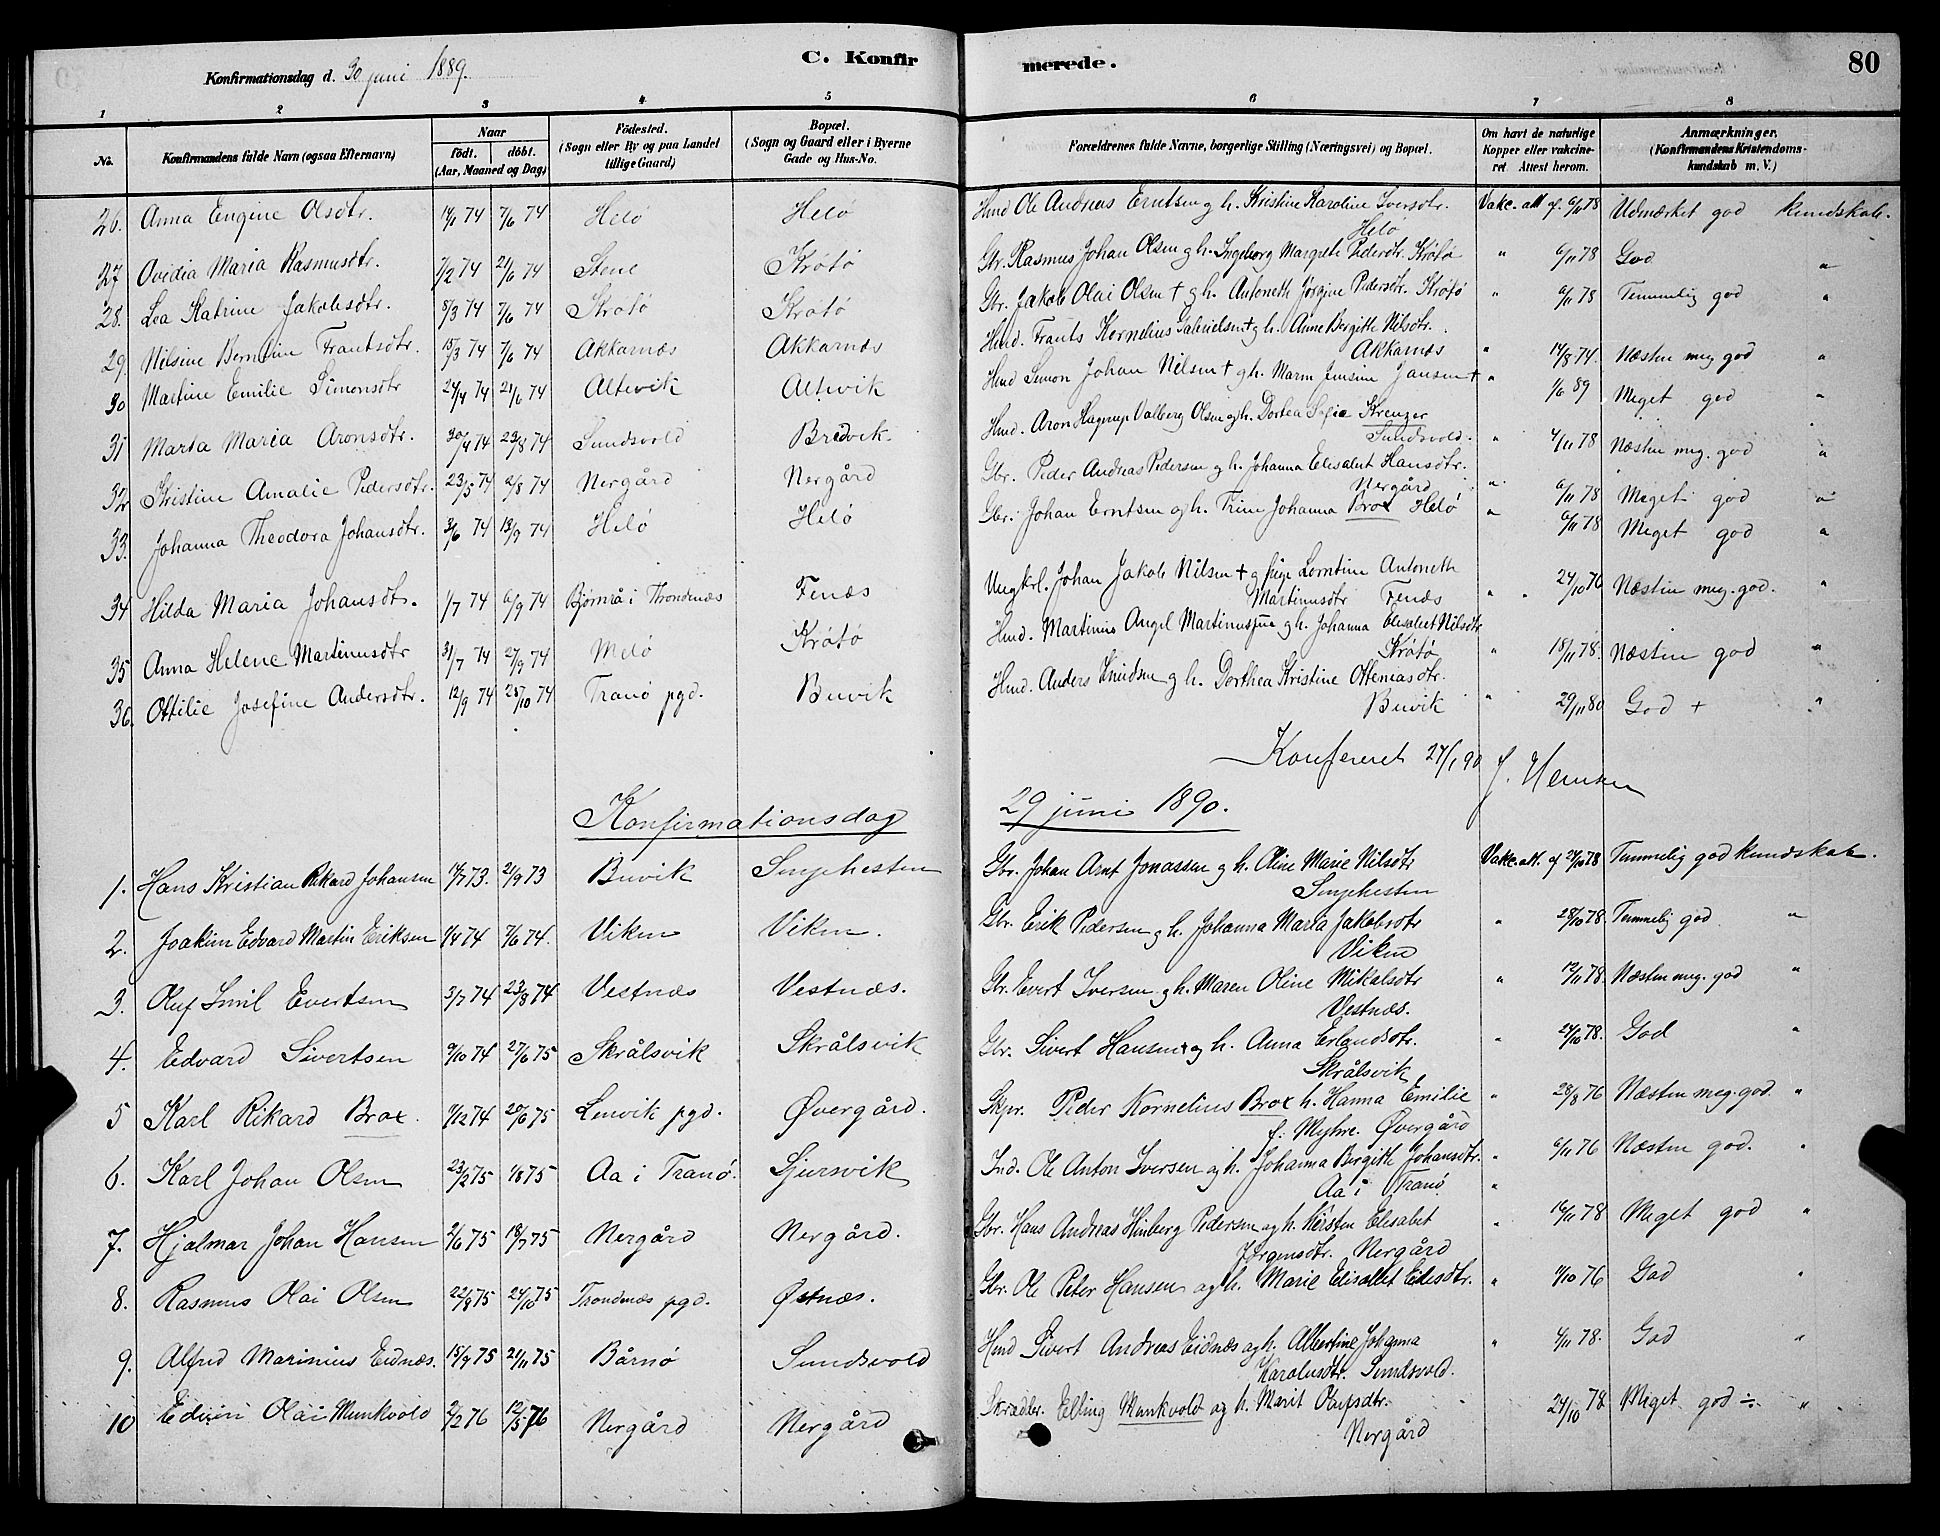 Konfirmationsdag d. 30 juni 1889.
C. Konfir
merede.
80
1 2 3 4 5 6 7 8
No.
Konfirmandens fulde Navn (ogsaa Efternavn)
Naar
födt. döbt.
(Aar, Maaned og Dag)
Födested.
(Sogn eller By og paa Landet
tillige Gaard)
Bopæl.
(Sogn og Gaard eller i Byerne
Gade og Hus-No.
Forældrenes fulde Navne, borgerlige Stilling (Næringsvei) og Bopæl.
Om havt de naturlige
Kopper eller vakcine-
ret Attest herom.
Anmærkninger.
(Konfirmandens Kristendoms-
kundskab m. V.)
26. Anna Eugine Olsdtr. 74 7/6 74 Helö Helö Hmd Ole Andreas Erntsen g h. Kristine Karoline Iversdtr. Vakc. att. f. 6/11 78 Udmærket god kundskab.
Helö
27 Ovidia Maria Rasmusdtr. 7/2 74 21/6 74 Stene Krötö Gbr. Rasmus Johan Olsen g h. Ingeborg Margrete Pedersdtr. Krötö " 6/11 78 God "
28. Lea Katrine Jakobsdtr. 8/3 74 7/6 74 Krötö Krötö Gbr. Jakob Olai Olsen + g h. Antoneth Jörgine Pedersdtr. Krötö " 6/11 78 Temmelig god "
29 Nilsine Berntine Frantsdtr. 15/3 74 7/6 74 Akkarnæs Akkarnæs Hmd. Frants Kornelius Gabrielsen + g h. Anne Bergitte Nilsdtr.
Akkarnæs " 14/8 74. Næsten meg god "
30 Martine Emilie Simonsdtr 24/4 74 21/6 74 Altevik Altevik Hmd Simon Johan Nilsen + g h. Maren Jensine Jansen + " 1/6 89 Meget god "
31 Marsa Maria Aronsdtr. 30/4 74 23/8 74 Sundsvold Bredvik. Hmd. Aron Hagrup Valberg Olsen g h. Dortea Sofie Kreuzer
Sundsvold. " 4/11 78 Næsten meg. god "
32 Kristine Amalie Pedersdtr. 23/5 74 2/8 74 Nergård Nergård Gbr. Peder Andreas Pedersen g h. Johanna Elisabet Hansdtr.
Nergård " 6/11 78 Meget god "
33. Johanna Theodora Johansdtr. 3/6 74 13/9 74 Helö Helö Gbr. Johan Erntsen og h. Trine Johanna Brox Helö " 6/11 78 Meget god "
34 Hilda Maria Johansdtr. 1/7 74 6/9 74 Bjørnrå i Trondenæs Fenæs Ungkrl. Johan Jakob Nilsen + g pige Lorntine Antoneth
Martinusdtr Fenæs " 24/10 76 Næsten meg. god. "
35 Anna Helene Martinusdtr 31/7 74 27/9 74 Melö Krötö Hmd. Martinus Angel Martinussen g h. Johanna Elisabet Nilsdtr
Krötö " 18/11 78. Næsten god "
36. Ottilie Josefine Andersdtr. 12/9 74 25/10 74 Tranö pgd. Buvik Hmd. Anders Knudsen g h. Dorthea Kristine Otteniasdtr.
Buvik " 29/11 80 God + "
Konfereret 27/1 90
Konfirmationsdag 29 juni 1890.
1. Hans Kristian Rikard Johansen 14/7 73. 21/9 73 Buvik Senjehesten Gbr. Johan Arnt Jonassen g h. Oline Marie Nilsdtr Vakc. att. af 24/10 78 Temmelig god kundskab.
Senjehesten
2. Joakim Edvard Martin Eriksen 1/4 74 7/6 74. Viken Viken. Gbr. Erik Pedersen g h. Johanna Maria Jakobsdtr " 28/10 78. Temmelig god "
Viken
3. Oluf Emil Evertsen 3/7 74 23/8 74 Vestnæs Vestnæs. Gbr. Evert Iversen g h. Maren Oline Mikalsdtr " 12/11 78. Næsten meg. god "
Vestnæs.
4. Edvard Sivertsen 9/10 74 27/6 75 Skrålsvik Skrålsvik Gbr. Sivert Hansen + g h. Anna Erlandsdtr. " 24/10 78. God "
Skrålsvik
5 Karl Rikard Brox. 7/12 74 20/6 75 Lenvik pgd. Övergård. Skpr. Peder Kornelius Brox h. Hanna Emilie " 28/8 76 Næsten meg. god. "
f: Myhre. Övergård
6. Karl Johan Olsen 23/2 75 1/8 75 Aa i Tranö. Gjersvik Ind. Ole Anton Iversen og h. Johanna Bergitte Johansdtr. " 6/11 76 Næsten god. "
Aa i Tranö "
7. Hjalmar Johan Hansen 2/6 75 18/7 75 Nergård Nergård. Gbr. Hans Andreas Hinberg Pedersen og h. Kirsten Elisabet " 14/11 78 Meget god "
Jörgensdtr. Nergård
8. Rasmus Olai Olsen 22/8 75 24/10 75 Trondenæs pgd. Östnæs. Gbr. Ole Peter Hansen og h. Marie Elisabet Eilesdtr. " 4/10 76 God "
9. Alfred Marinius Eidnæs. 15/9 75 21/11 75 Bårnö Sundsvold Hmd Sivert Andreas Eidnæs og h. Albertine Johanna " 4/11 78. God "
Karolusdtr. Sundsvold.
10 Edvin Olai Munkvold 2/2 76 12/5 76 Nergård Nergård Skrædder. Elling Munkvold og h. Marit Olafsdtr. 24/10 78 Meget god ÷ "
Nergård